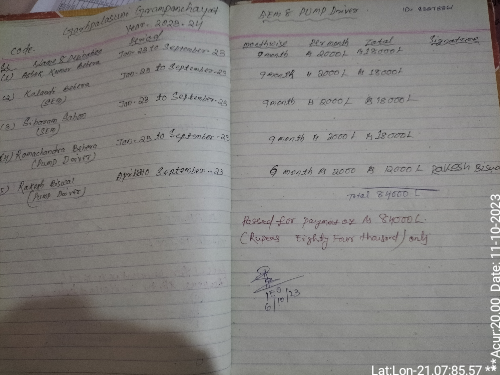 Grampanchayat
Year. 2023-24
Code.
Period
SL Name & Designation
(1) Ashok Kumar Behera Jan-23 to September-23
(2) Kalandi Behera Jan-23 to September-23
(SEM)
(3) Jan-23 to September-23
(SEM)
(4) Ramachandra Behera Jan-23 to September-23
(Pump Driver)
(5) Rakesh Biswal April to September-23
(Pump Driver)
SEM & PUMP Driver
monthwise Per month Total Signature
9 month ₨ 2000/- ₨ 18000/-
9 month ₨ 2000/- ₨ 18000/-
9 month ₨ 2000/- ₨ 18000/-
9 month ₨ 2000/- ₨ 18000/-
6 month ₨ 2000 ₨ 12000/- Rakesh Biswal
Total 84000/-
Passed for payment ₨ 84000/-
(Rupees Eighty Four thousand) only
6/10/23
Lat:Lon-21.07:85.57 **Acur:20.00 Date: 11-10-2023